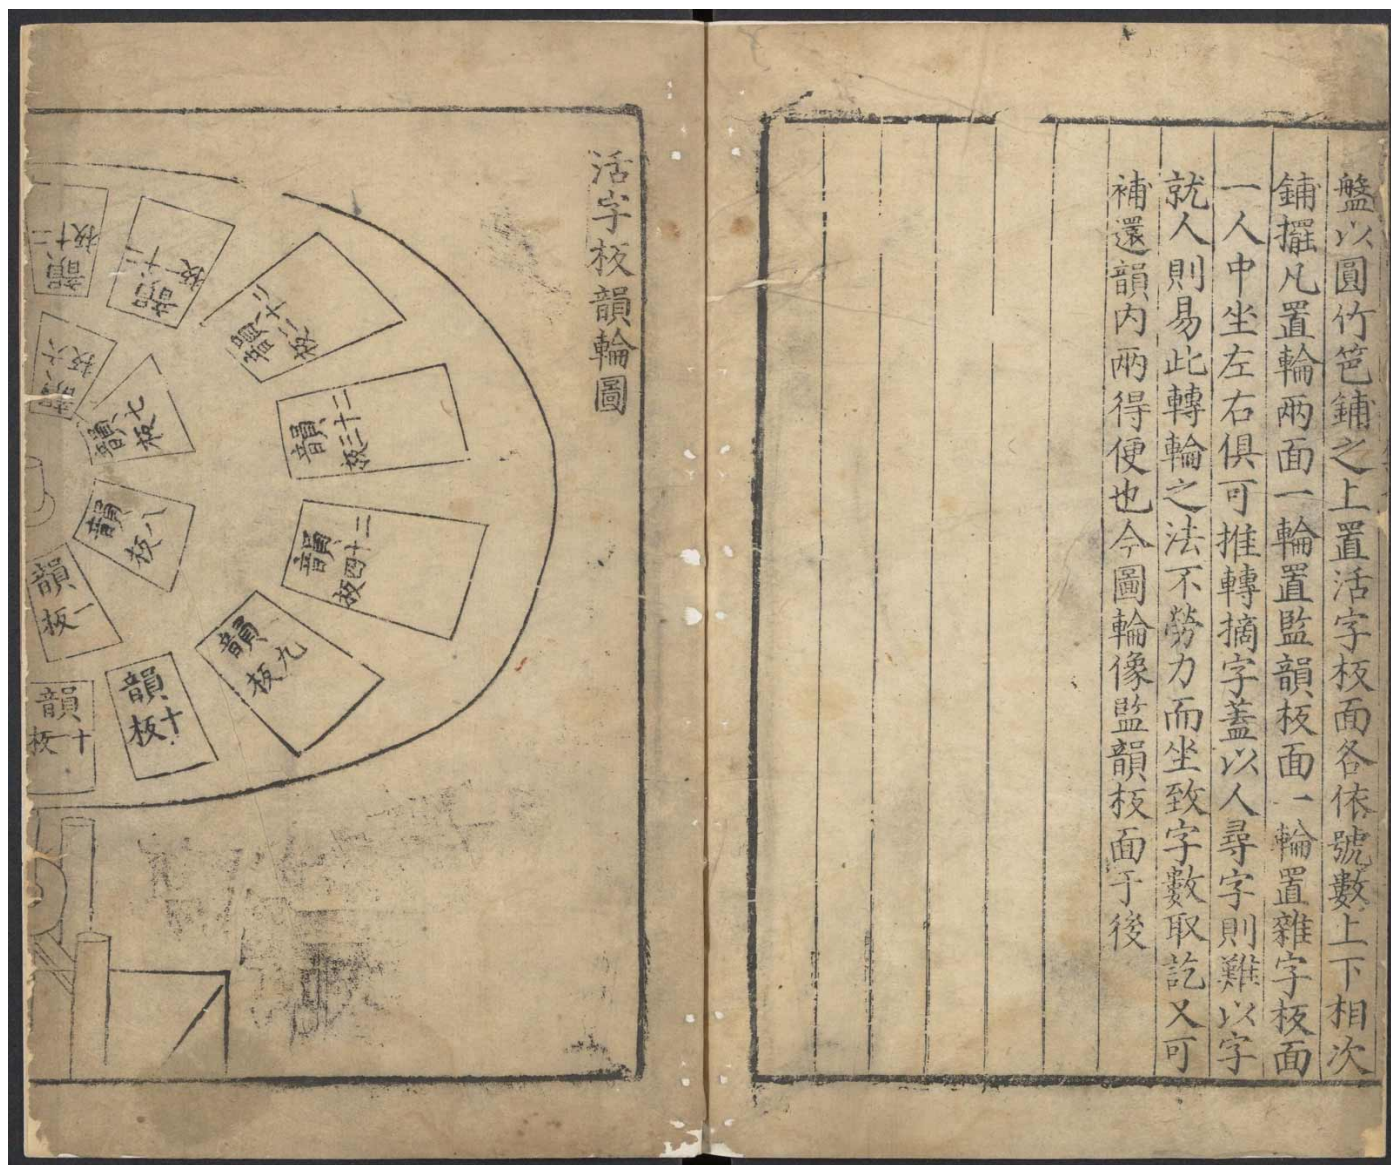 盤以圓竹笆鋪之上置活字板面各依號數上下相次
鋪擺凡置輪兩面一輪置監韻板面一輪置雜字板面
一人中坐左右俱可推轉摘字蓋以人尋字則難以字
就人則易此轉輪之法不勞力而坐致字數取訖又可
補還韻内兩得便也今圖輪像監韻板面于後
活字板韻輪圖
韻板二十三
韻板二十四
韻板九
韻板十
韻板十一
韻板六
韻板七
韻板八
韻板一